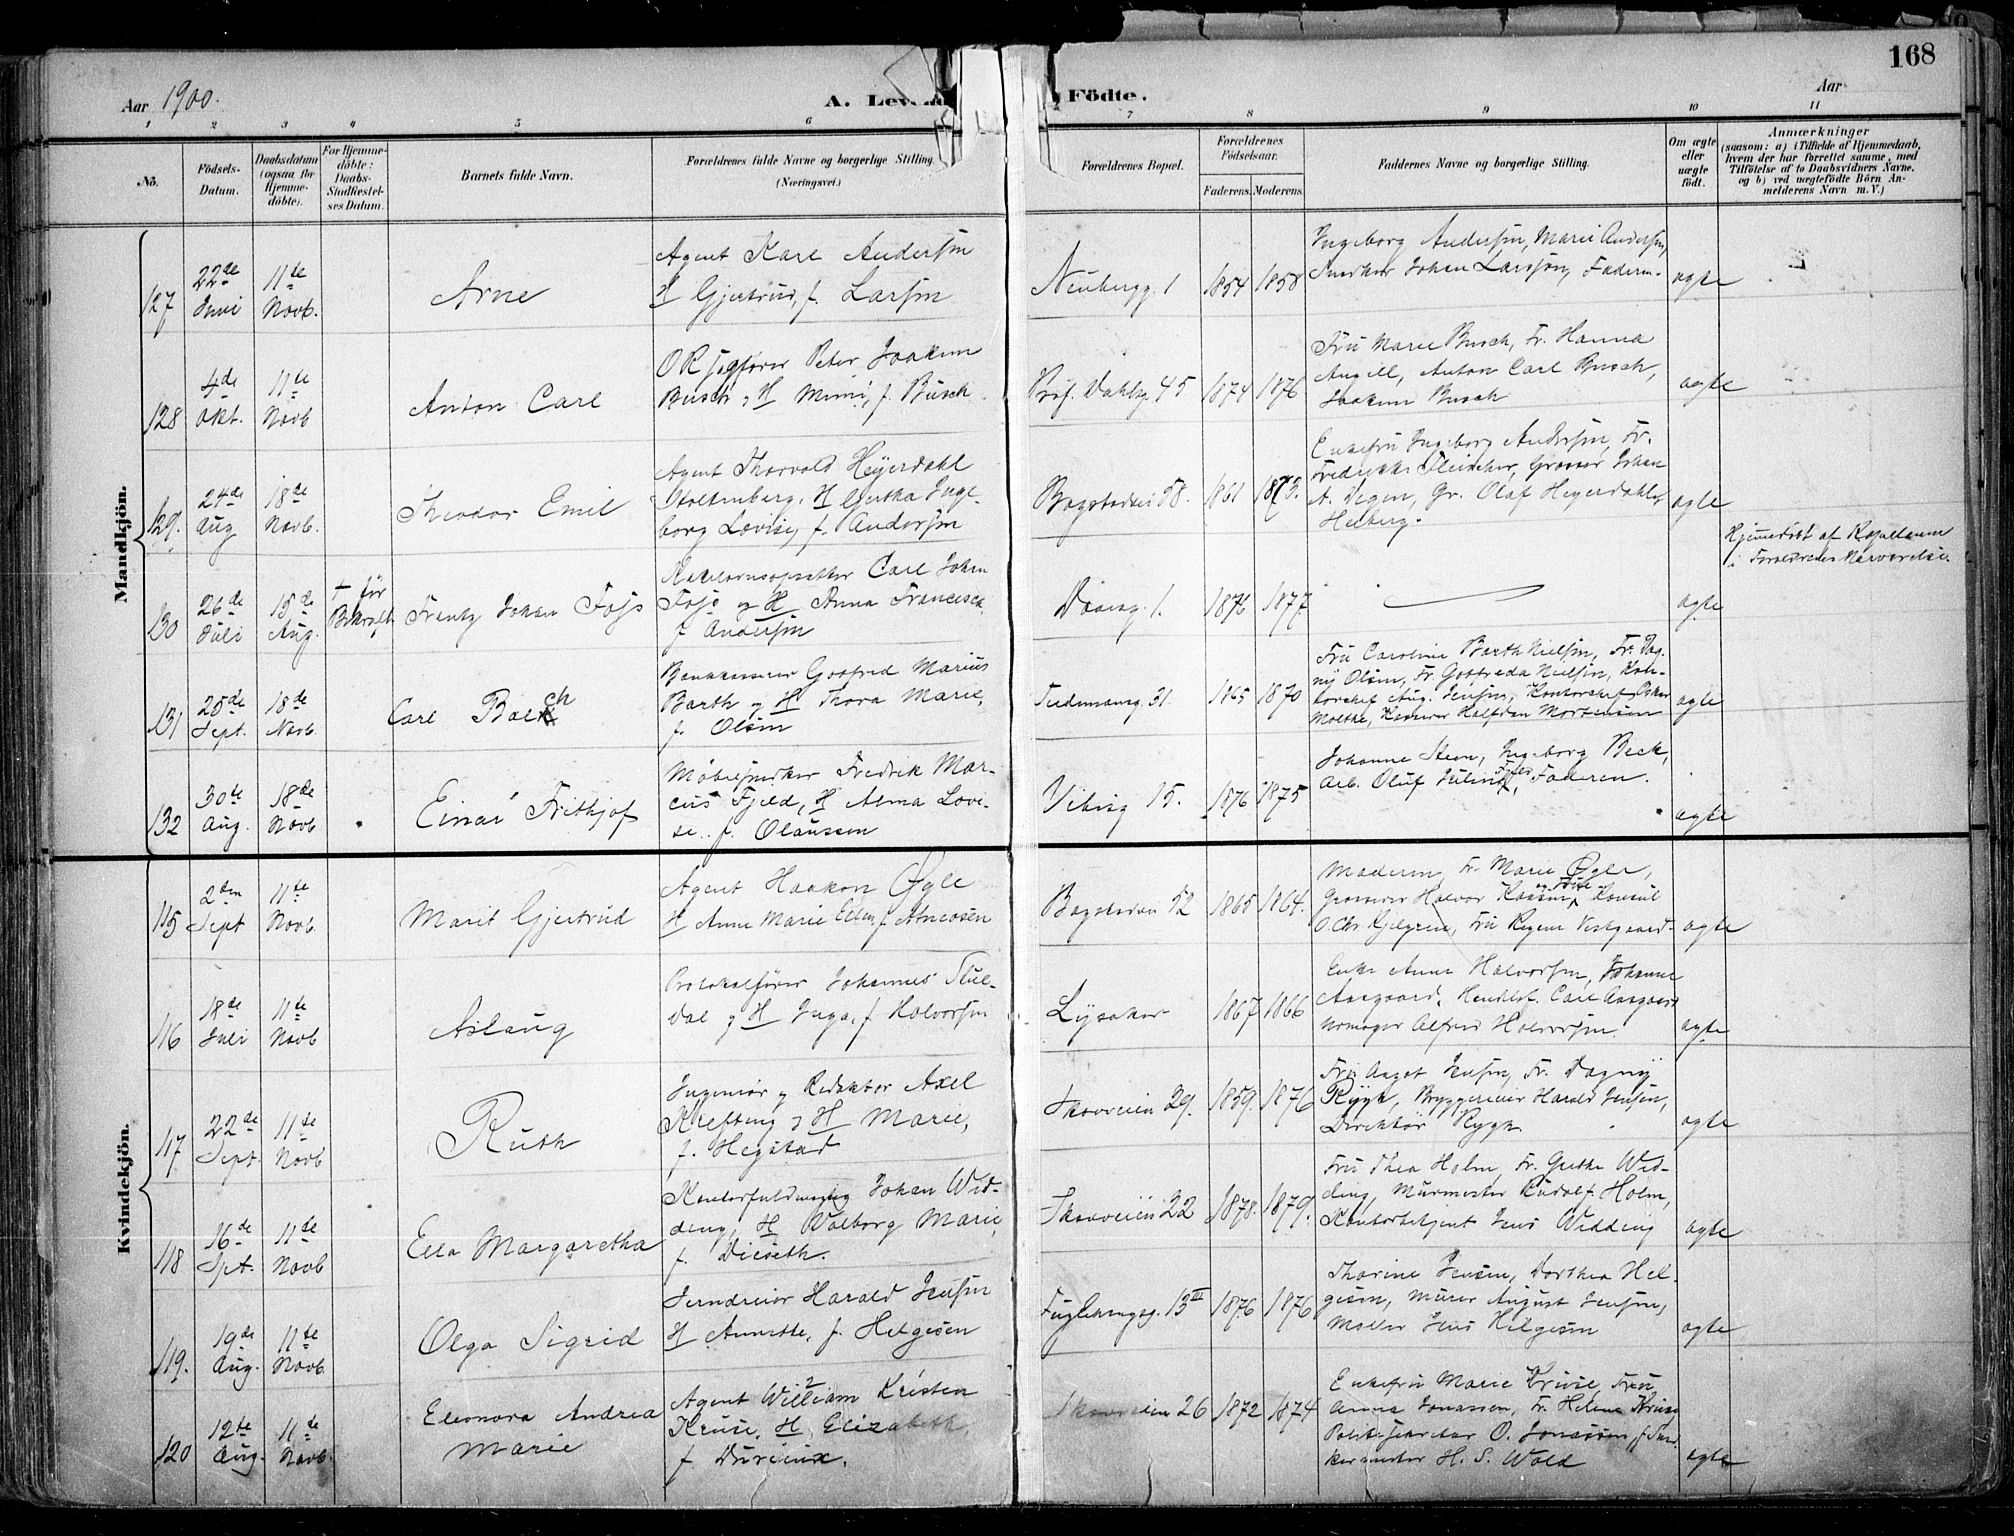 168
Aar 1900.
A. Lev
Födte.
Aar
1 2 3 4 5 6 7 8 9 10 11
No.
Födsels-Datum.
Daabsdatum (ogsaa for Hjemme-döbte).
For Hjemme-döbte: Daabs-Stadfæstel-ses Datum.
Barnets fulde Navn.
Forældrenes fulde Navne og borgerlige Stilling. (Næringsvei.)
Forældrenes Bopæl.
Forældrenes Födselsaar.
Faderens. Moderens.
Faddernes Navne og borgerlige Stilling.
Om ægte eller uægte født.
Anmærkninger
(saasom: a) i Tilfælde af Hjemmedaab,
hvem der har forrettet samme, med
Tilföielse af to Daabsvidners Navne,
og b) ved uægtefödte Börn An-
melderens Navn m. V.)
Mandkjön.
127
22de Juni
11te Novb.
Arne
Agent Karl Andersen
H Gjertrud, f. Larsen
Neubergg. 1
1854 1858
Ingeborg Andersen, Marie Andersen,
Snedker Johan Larssen, Faderen.
ægte
128
4de Okt.
11te Novb
Anton Carl
Peter Joakim
Busch, H Mimi, f. Busch
Prof. Dahlsg. 45
1874 1876
Fru Marie Busch, Fr. Hanna
Angell, Anton Carl Busch,
Joakim Busch
ægte
129.
24de Aug
18de Novb.
Theodor Emil
Agent Thorvald Heyerdahl
Stoltenberg, H Gertha Inge-
borg Lovise, f. Andersen
Bogstadvei 58.
1861 1873.
Enkefru Ingeborg Andersen, Fr.
Fredrikke Fleischer, Grosser Johan
A. Degen, Gr. Olaf Heyerdahl
Heiberg.
ægte
130
26de Juli
15de Aug.
† før Bekræft
Frantz Johan Fojs
Kakkelovnsopsætter Carl Johan
Fojs og H Anna Francisca,
f Andersen
Daasg. 1.
1876 1877
ægte
Hjemmedøbt af
i Forældrenes Nærværelse.
131
25de Sept.
18de Novb
Carl Barth
Bankkasserer Gotfred Marius
Barth og H Thora Marie,
f. Olsen
Tidemansg. 31.
1865 1870
Fru Caroline Barth Nielsen, Fr. Dag-
ny Olsen, Fr. Gotfreda Nielsen, Kon-
torchef Aug. Jensen, Kontorchef Oskar
Moltke, Kasserer Halfdan Mortensen
ægte
132
30te Aug.
18de Novb
Einar Frithjof
Møbelsnedker Fredrik Mar-
cus Fjeld, H Alma Lovi-
se. f. Olaussen
Vibesg 15.
1876 1875
Johanne Steen, Ingeborg Beck,
Arb. Oluf Julius Fjeld, Faderen.
ægte
Kvindekjön.
115
2den Sept
11te Novb.
Marit Gjertrud
Agent Haakon Øgle
H Anne Marie Ellen, f. Asmeosen
Bogstadvei 52
1865 1864.
Moderen, Fr. Marie Øgle,
Grosserer Halvor Konsul
O. Chr. Gjelgren, Fru Regine Vestgaard
ægte
116
18de Juli
11te Novb
Aslaug
Protokolfører Johannes Stul-
dal og H Inga, f. Halvorsen
Lysaker
1867 1866
Enke Anne Halvorsen, Johanne
Aasgaard, Handelsf. Carl Aasgaard
Alfred Halvorsen.
ægte
117
22de Sept.
11te Novb
Ruth
Ingeniør og Redaktør Axel
Krefting og H Marie,
f. Hegstad
Skovveien 29.
1859. 1876
Fru Aagot Jensen, Fr. Dagny
Rygh, Bryggerieier Harald Jensen,
Direktør Rygh
ægte
118
16de Spt.
11te Novb
Ella Margaretha
Kontorfuldmægtig Johan Wid-
ding, H Valborg Marie,
f. Dieseth.
Skovveien 22
1878. 1879.
Fru Thea Holm, Fr. Grethe Wid-
ding, Murmester Rudolf Holm,
Kontorbetjent Jens Widding
ægte
119.
19de Aug.
11te Novb.
Olga Sigrid
Jerndreier Harald Jensen
H Annette, f. Helgesen
Fuglehaugsg. 13 III
1876 1876
Thorine Jensen, Dorthea Hel-
gesen, Murer August Jensen,
Maler Jens Helgesen
ægte
120
12te Aug.
11te Novb.
Eleonora Andrea
Marie
Agent William Kristen
Kruse, H. Elizabeth,
f Durieux.
Skovveien 26
1872 1874
Enkefru Marie Kruse, Fru
Anna Jonassen, Fr. Helene Kruse
Politisekretær O. Jonassen,
H. S. Wold
ægte